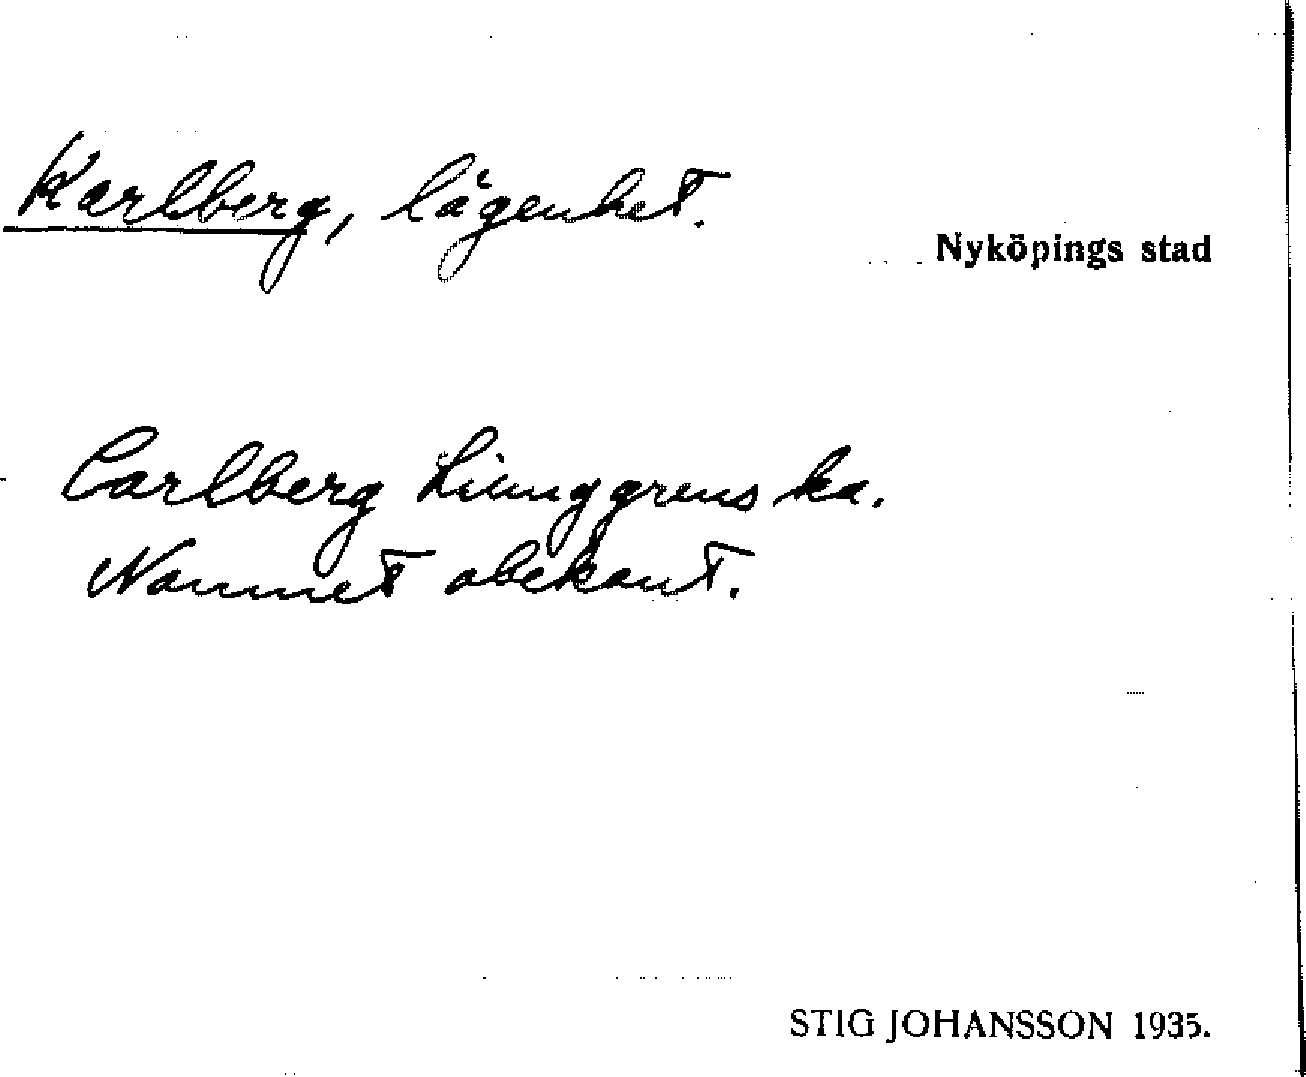 Karlberg, lägenhet.
Nyköpings stad
Carlberg Liunggrens ka.
Namnet obekant.
STIG JOHANSSON 1935.